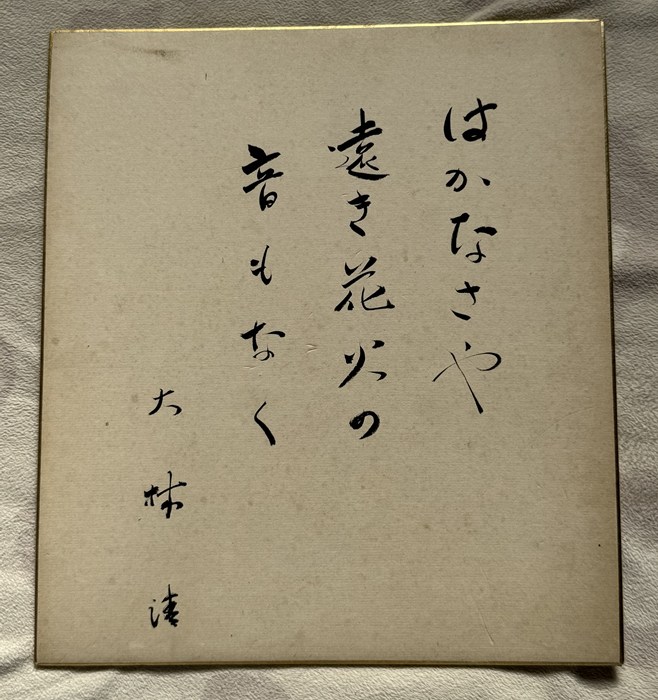 はかなさや
遠き花火の
音もなく
大林清